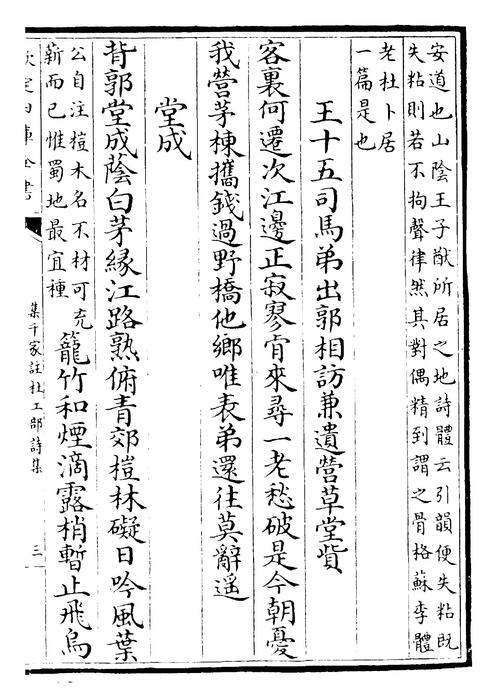 安道也山陰王子猷所居之地詩體云引韻便失粘既
失粘則若不拘聲律然其對偶精到謂之骨格蘇李體
老杜卜居
一篇是也
王十五司馬弟出郭相訪兼遺營草堂貲
客裏何遷次江邊正寂寥肯來尋一老愁破是今朝憂
我營茅棟攜錢過野橋他鄉唯表弟還往莫辭遥
堂成
背郭堂成蔭白茅緣江路熟俯青郊榿林礙日吟風葉
公自注榿木名不材可充
薪而已惟蜀地最宜種
籠竹和煙滴露梢暫止飛烏
欽定四庫全書
集千家註杜工部詩集
三